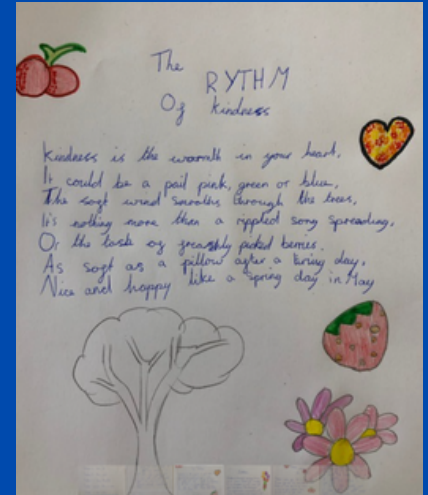 The
RYTHM
Of kindness
Kindness is the warmth in your heart,
It could be a pail pink, green or blue,
The soft wind smooths through the trees,
It's nothing more then a rippled song spreading,
Or the task of freashly picked berries.
As soft as a pillow after a tiring day,
Nice and happy like a spring day in May